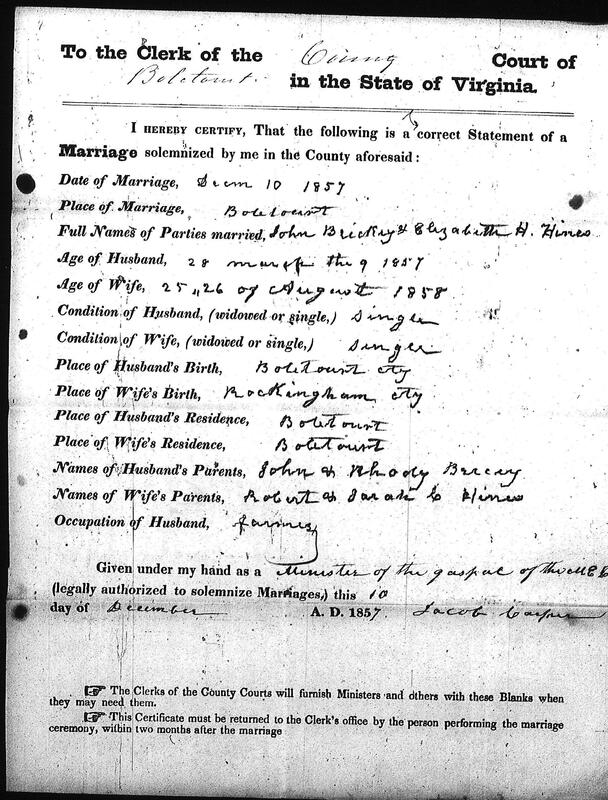 To the Clerk of the County Court of
Botetourt in the State of Virginia.
I HEREBY CERTIFY, That the following is a correct Statement of a
Marriage solemnized by me in the County aforesaid:
Date of Marriage, Decm 10 1857
Place of Marriage, Botetourt
Full Names of Parties married, John Brickey & Elizabeth H. Hines
Age of Husband, 28 march the 9 1857
Age of Wife, 25,, 26 of August 1858
Condition of Husband, (widowed or single,) Single
Condition of Wife, (widowed or single,) Single
Place of Husband's Birth, Botetourt cty
Place of Wife's Birth, Rockingham cty
Place of Husband's Residence, Botetourt
Place of Wife's Residence, Botetourt
Names of Husband's Parents, John & Rhody
Names of Wife's Parents, Robert & Sarah C Hines
Occupation of Husband, farmer
Given under my hand as a Minister of the gaspal of the M E
(legally authorized to solemnize Marriages,) this 10
day of December A. D. 1857. Jacob
The Clerks of the County Courts will furnish Ministers and others with these Blanks when
they may need them.
This Certificate must be returned to the Clerk's office by the person performing the marriage
ceremony, within two months after the marriage